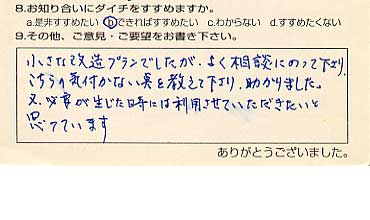 8.お知り合いにダイチをすすめますか。
a.是非すすめたい b.できればすすめたい c.わからない d.すすめたくない
9.その他、ご意見・ご要望をお書き下さい。
小さな改造プランでしたが、よく相談にのって下り、
こちらの気付かない点を教えて下り、助かりました。
又、必要が生じた時には利用させていただきたいと
思っています
ありがとうございました。